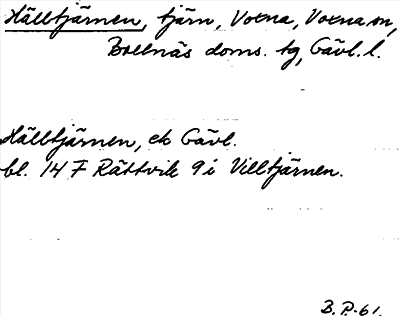 Hälltjärnen, tjärn, Voxna, Voxna sn,
Bollnäs doms. tg, Gävl. l.
Hälltjärnen, ek Gävl.
bl. 14 F Rättvik 9 i Villtjärnen.
B. P-61.